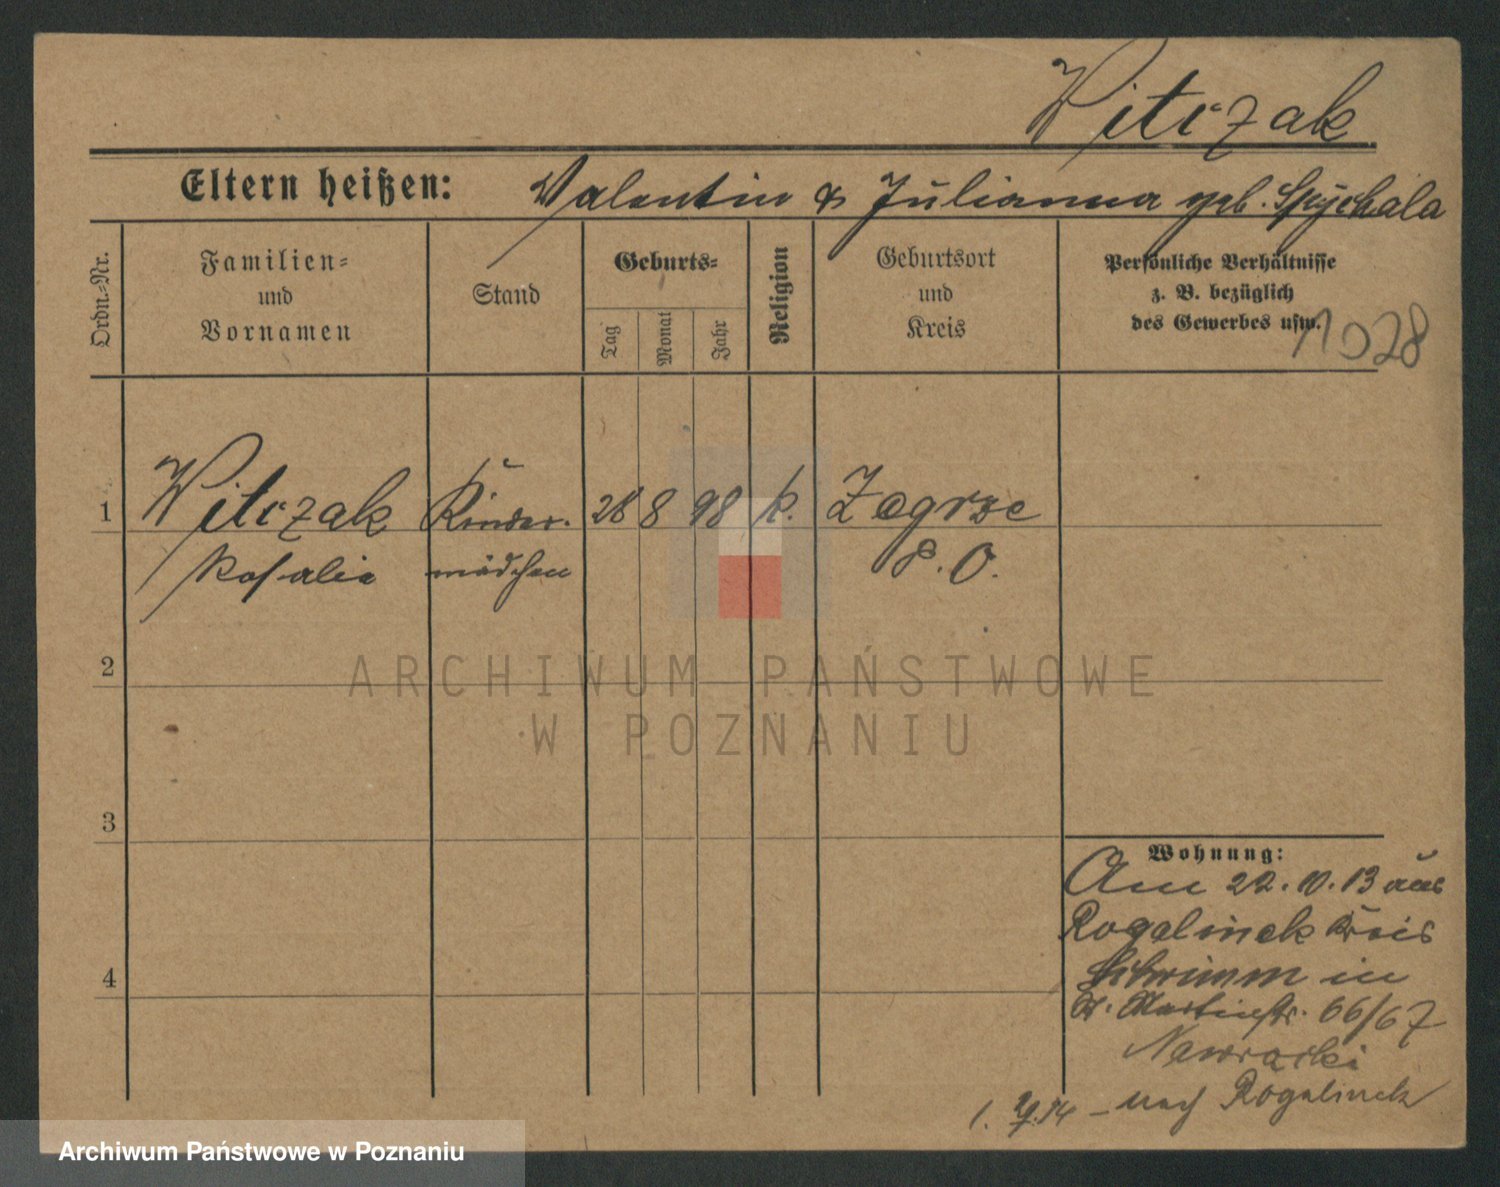 Witczak
Eltern heißen: Valentin & Julianna geb. Spychala
Ordn.-Nr.
Familien-
und
Vornamen
Stand
Geburts-
Tag
Monat
Jahr
Religion
Geburtsort
und
Kreis
Persönliche Verhältnisse
z. B. bezüglich
des Gewerbes usw.
1028
1 Witczak Kinder- 28 8 98 k. Zegrze
Rosalie mädchen P. O.
2
3
4
Wohnung:
Am 22.10.13 aus
Rogalinek Kreis
Schrimm in
St. Martinstr. 66/67
Nawracki
1. 14 – nach Rogalinek
ARCHIWUM PAŃSTWOWE
W POZNANIU
Archiwum Państwowe w Poznaniu